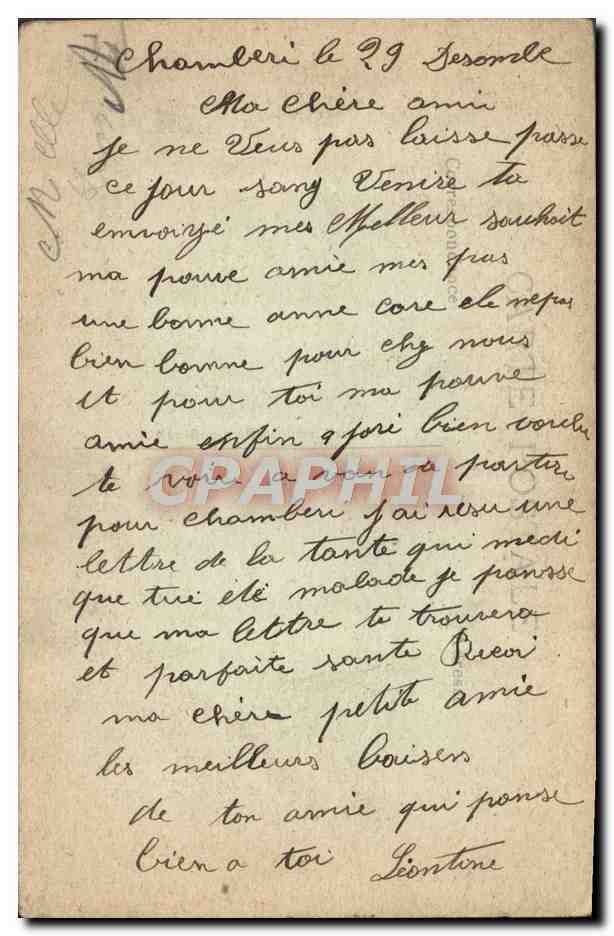 Chamberi le 29 Desombe
Ma chère amie
je ne Veus pas laisse passe
ce jour sang Venire ta
envoiyé mes Melleur souhait
ma pouve amie mes pas
une bonne anne care ele nepas
bien bonne pour chez nous
et pour toi ma pouve
amie enfin jore bien voulu
te voir a van de partire
pour chamberi j'ai resu une
lettre de la tante qui medi
que tue été malade je pansse
que ma lettre te trouvera
et parfaite sante Recoi
ma chère petite amie
les meilleurs baisers
de ton amie qui panse
bien a toi Léontine
Melle
CARTE POSTALE
Correspondance
CPAPHIL